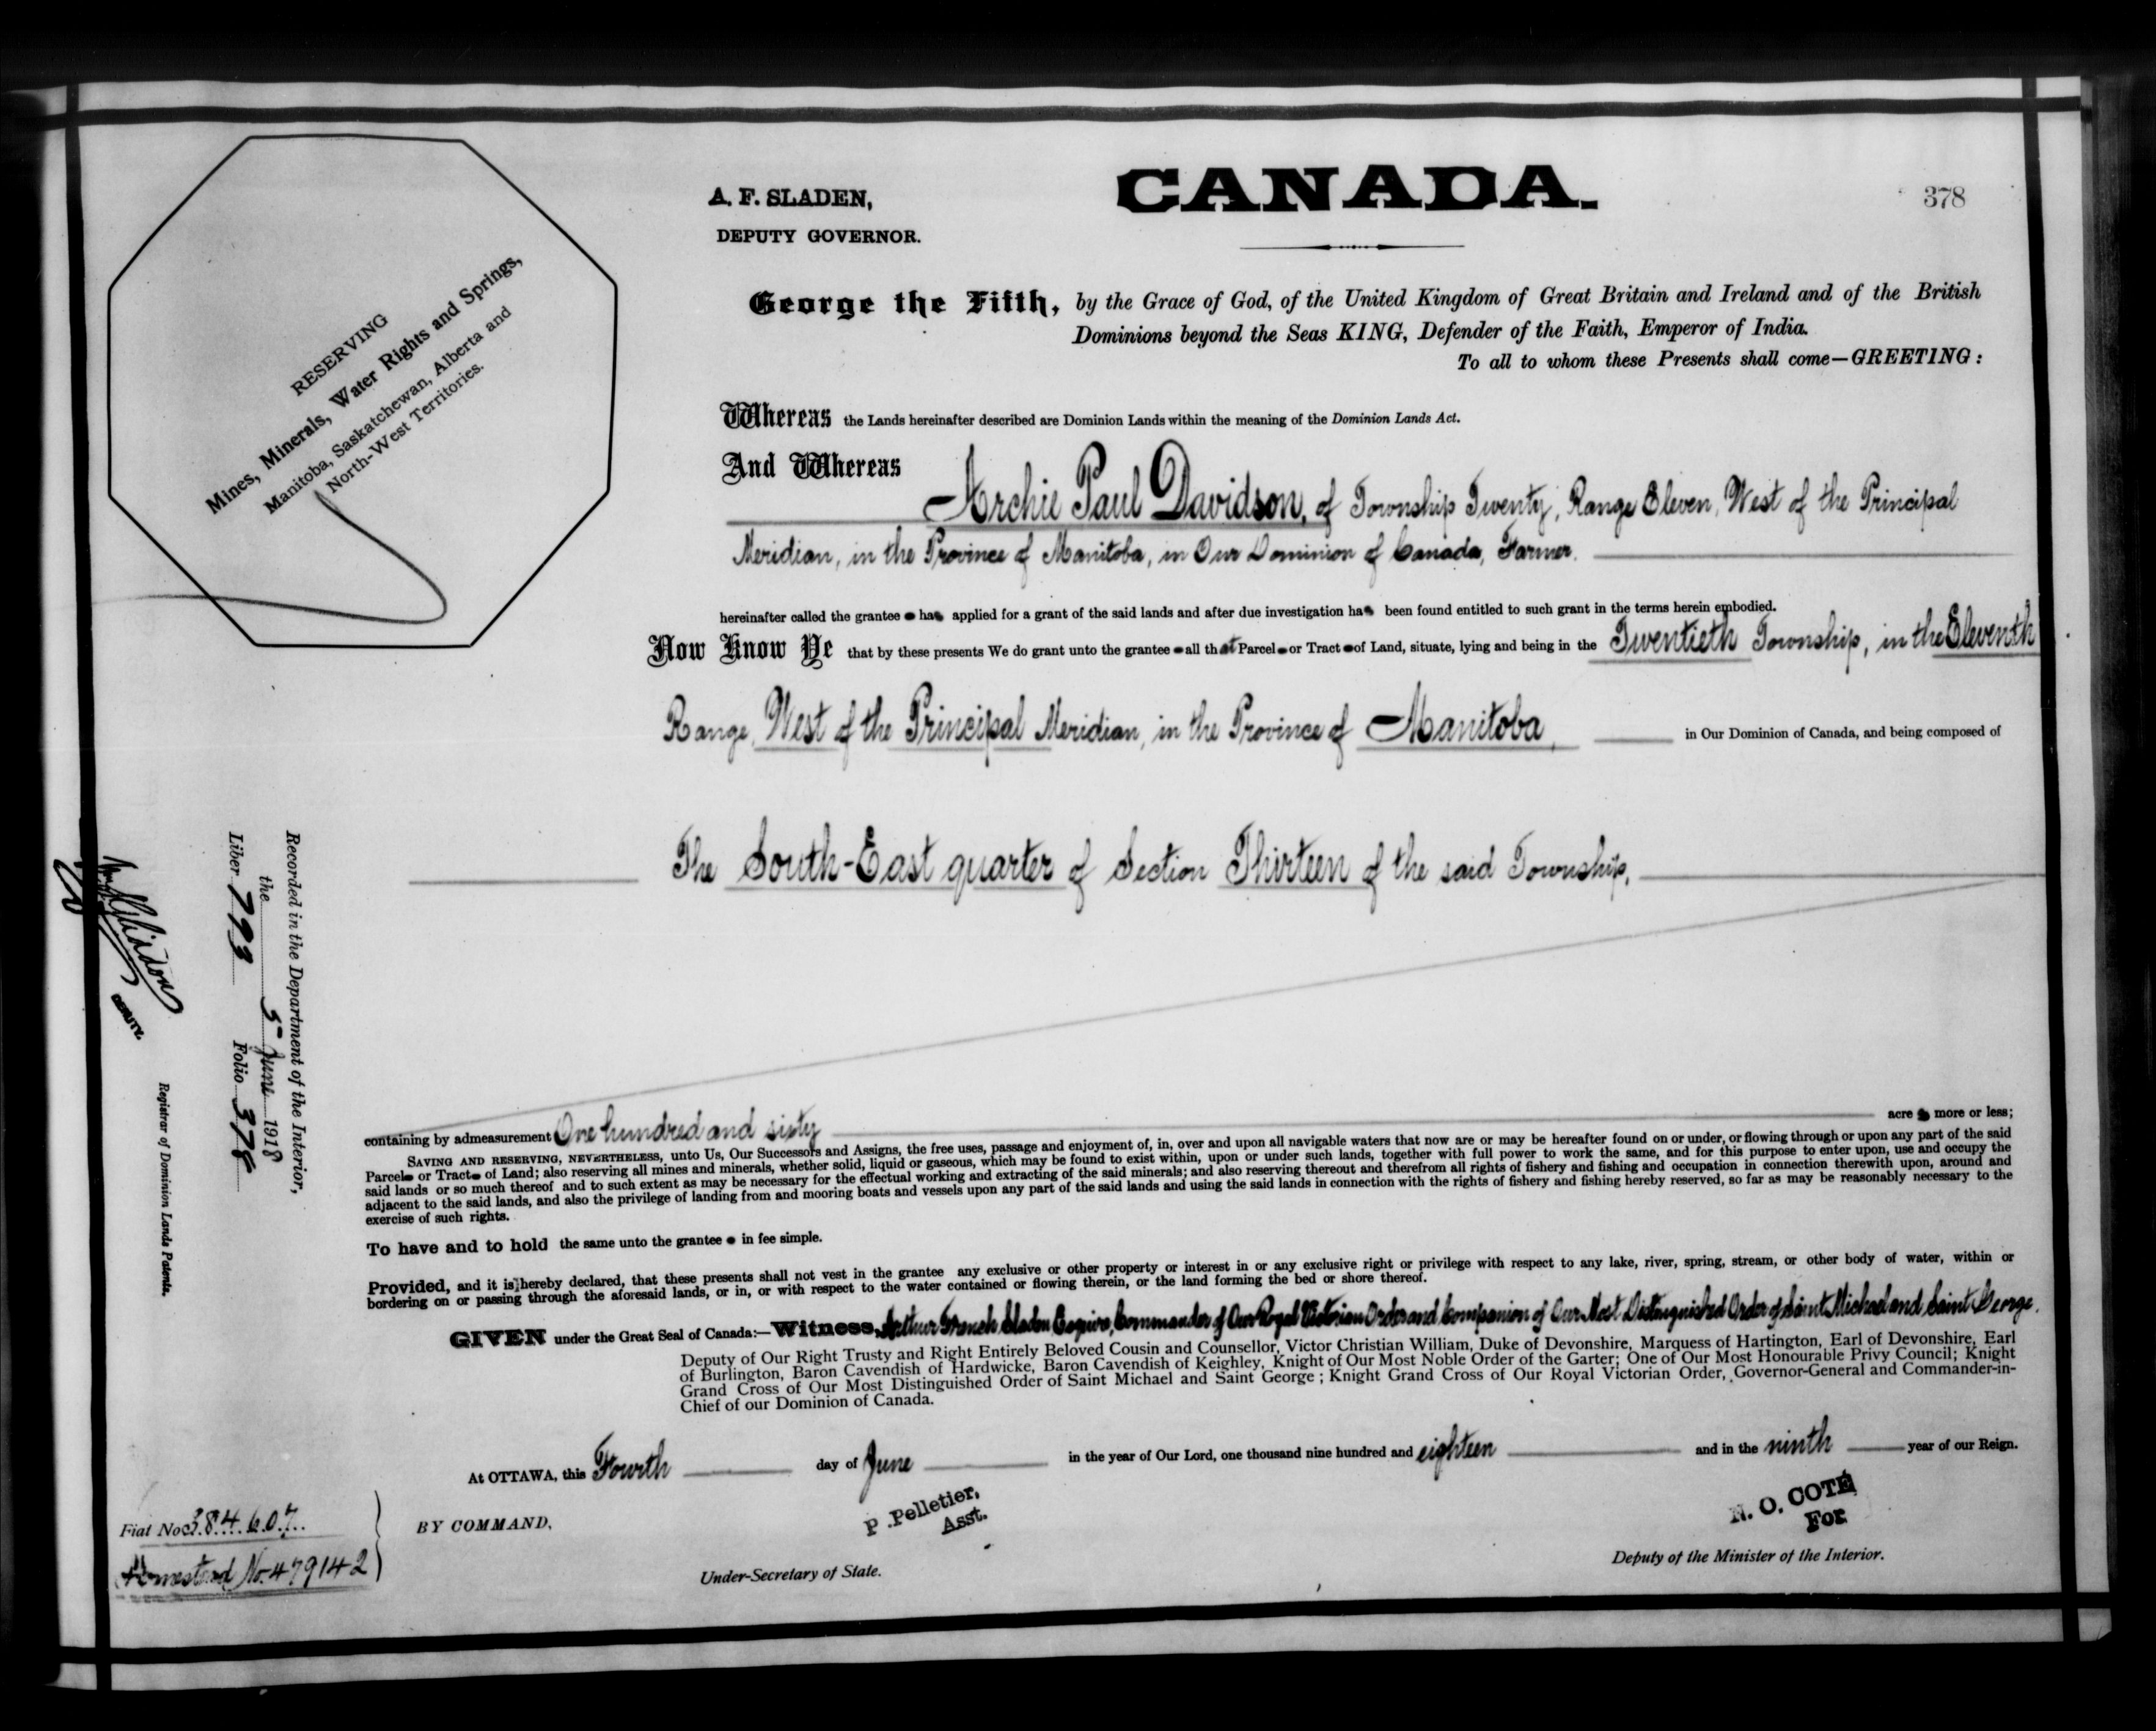 CANADA.
378
A. F. SLADEN,
DEPUTY GOVERNOR.
RESERVING
Mines, Minerals, Water Rights and Springs,
Manitoba, Saskatchewan, Alberta and
North-West Territories.
George the Fifth, by the Grace of God, of the United Kingdom of Great Britain and Ireland and of the British
Dominions beyond the Seas KING, Defender of the Faith, Emperor of India.
To all to whom these Presents shall come—GREETING:
Whereas the Lands hereinafter described are Dominion Lands within the meaning of the Dominion Lands Act.
And Whereas Archie Paul Davidson, of Township Twenty, Range Eleven, West of the Principal
Meridian, in the Province of Manitoba, in Our Dominion of Canada, Farmer.
hereinafter called the grantee has applied for a grant of the said lands and after due investigation has been found entitled to such grant in the terms herein embodied.
Now Know Ye that by these presents We do grant unto the grantee all that Parcel or Tract of Land, situate, lying and being in the Twentieth Township, in the Eleventh
Range, West of the Principal Meridian, in the Province of Manitoba, in Our Dominion of Canada, and being composed of
The South-East quarter of Section Thirteen of the said Township,
containing by admeasurement One hundred and sixty acres more or less;
SAVING AND RESERVING, NEVERTHELESS, unto Us, Our Successors and Assigns, the free uses, passage and enjoyment of, in, over and upon all navigable waters that now are or may be hereafter found on or under, or flowing through or upon any part of the said
Parcel or Tract of Land; also reserving all mines and minerals, whether solid, liquid or gaseous, which may be found to exist within, upon or under such lands, together with full power to work the same, and for this purpose to enter upon, use and occupy the
said lands or so much thereof and to such extent as may be necessary for the effectual working and extracting of the said minerals; and also reserving thereout and therefrom all rights of fishery and fishing and occupation in connection therewith upon, around and
adjacent to the said lands, and also the privilege of landing from and mooring boats and vessels upon any part of the said lands and using the said lands in connection with the rights of fishery and fishing hereby reserved, so far as may be reasonably necessary to the
exercise of such rights.
To have and to hold the same unto the grantee in fee simple.
Provided, and it is hereby declared, that these presents shall not vest in the grantee any exclusive or other property or interest in or any exclusive right or privilege with respect to any lake, river, spring, stream, or other body of water, within or
bordering on or passing through the aforesaid lands, or in, or with respect to the water contained or flowing therein, or the land forming the bed or shore thereof.
GIVEN under the Great Seal of Canada:—Witness, Arthur French Sladen Esquire, Commander of Our Royal Victorian Order and Companion of Our Most Distinguished Order of Saint Michael and Saint George,
Deputy of Our Right Trusty and Right Entirely Beloved Cousin and Counsellor, Victor Christian William, Duke of Devonshire, Marquess of Hartington, Earl of Devonshire, Earl
of Burlington, Baron Cavendish of Hardwicke, Baron Cavendish of Keighley, Knight of Our Most Noble Order of the Garter; One of Our Most Honourable Privy Council; Knight
Grand Cross of Our Most Distinguished Order of Saint Michael and Saint George; Knight Grand Cross of Our Royal Victorian Order, Governor-General and Commander-in-
Chief of our Dominion of Canada.
At OTTAWA, this Fourth day of June in the year of Our Lord, one thousand nine hundred and eighteen and in the ninth year of our Reign.
BY COMMAND,
P. Pelletier,
Asst.
Under-Secretary of State.
N. O. COTÉ
For
Deputy of the Minister of the Interior.
Fiat No 384607
Homestead No. 479142
Recorded in the Department of the Interior,
the 5 June 1918
Liber 793 Folio 378
DEPUTY.
Registrar of Dominion Lands Patents.